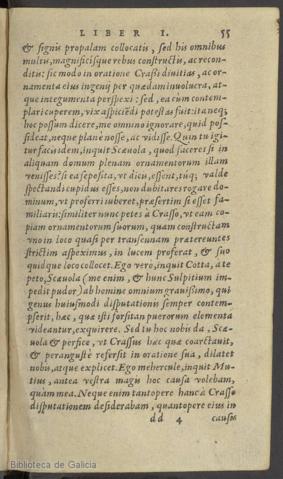 LIBER I. 55
& signis propalam collocatis, sed his omnibus
multis, magnificisque rebus constructis, ac recon-
ditis: sic modo in oratione Crassi diuitias, ac or-
namenta eius ingenij per quædam inuolucra, at-
que integumenta perspexi: sed, ea cùm contem-
plari cuperem, vix aspiciẽdi potestas fuit: ita neq;
hoc possum dicere, me omnino ignorare, quid pos-
sideat, neque planè nosse, ac vidisse. Quin tu igi-
tur facis idem, inquit Scæuola, quod faceres si in
aliquam domum plenam ornamentorum illam
venisses? si ea seposita, vt dicis, essent, túq; valde
spectandi cupidus esses, non dubitares rogare do-
minum, vt proferri iuberet, præsertim si esset fa-
miliaris: similiter nunc petes à Crasso, vt eam co-
piam ornamentorum suorum, quam constructam
vno in loco quasi per transennam prætereuntes
strictim aspeximus, in lucem proferat, & suo
quidque loco collocet. Ego vero, inquit Cotta, à te
peto, Scæuola (me enim, & hunc Sulpitium im-
pedit pudor) ab homine omnium grauissimo, qui
genus huiusmodi disputationis semper contem-
pserit, hæc, quæ isti forsitan puerorum elementa
videantur, exquirere. Sed tu hoc nobis da, Scæ-
uola & perfice, vt Crassus hæc quæ coarctauit,
& perangustè refersit in oratione sua, dilatet
nobis, atque explicet. Ego mehercule, inquit Mu-
tius, antea vestra magis hoc causa volebam,
quàm mea. Neque enim tantopere hanc à Crasso
disputationem desiderabam, quantopere eius in
dd 4 causis
Biblioteca de Galicia